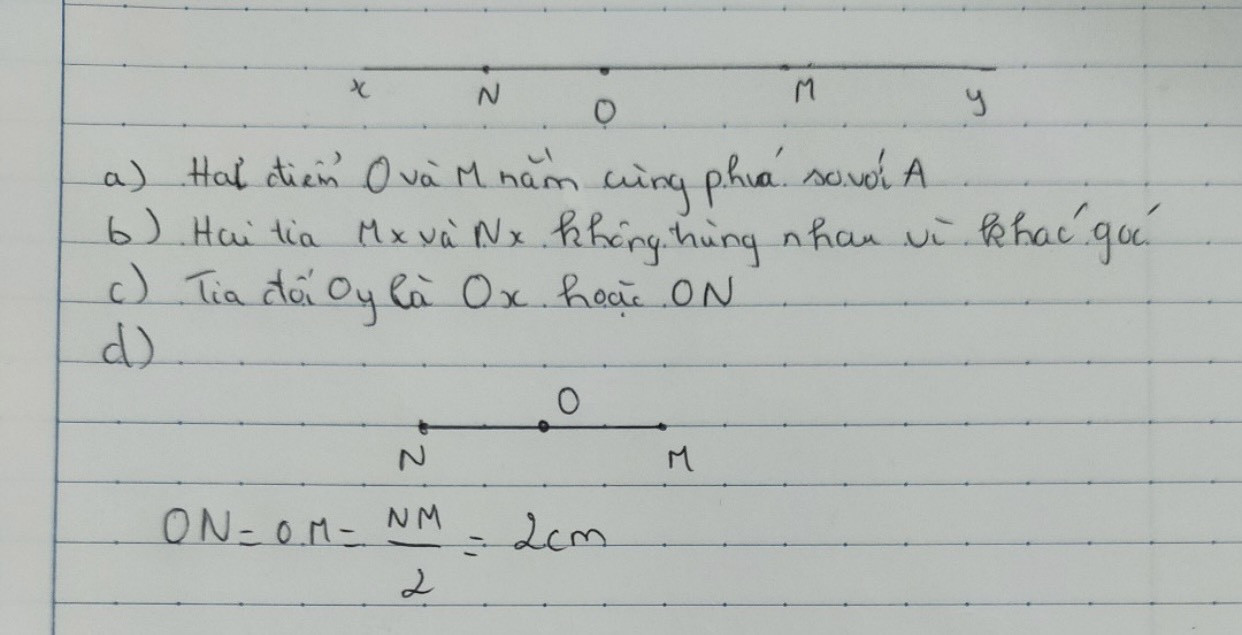 x N O M y
a) Hai điểm O và M nằm cùng phía so với A
b) Hai tia Mx và Nx không trùng nhau vì khác gốc
c) Tia đối Oy là Ox hoặc ON
d)
O
N M
ON = OM = NM/2 = 2cm